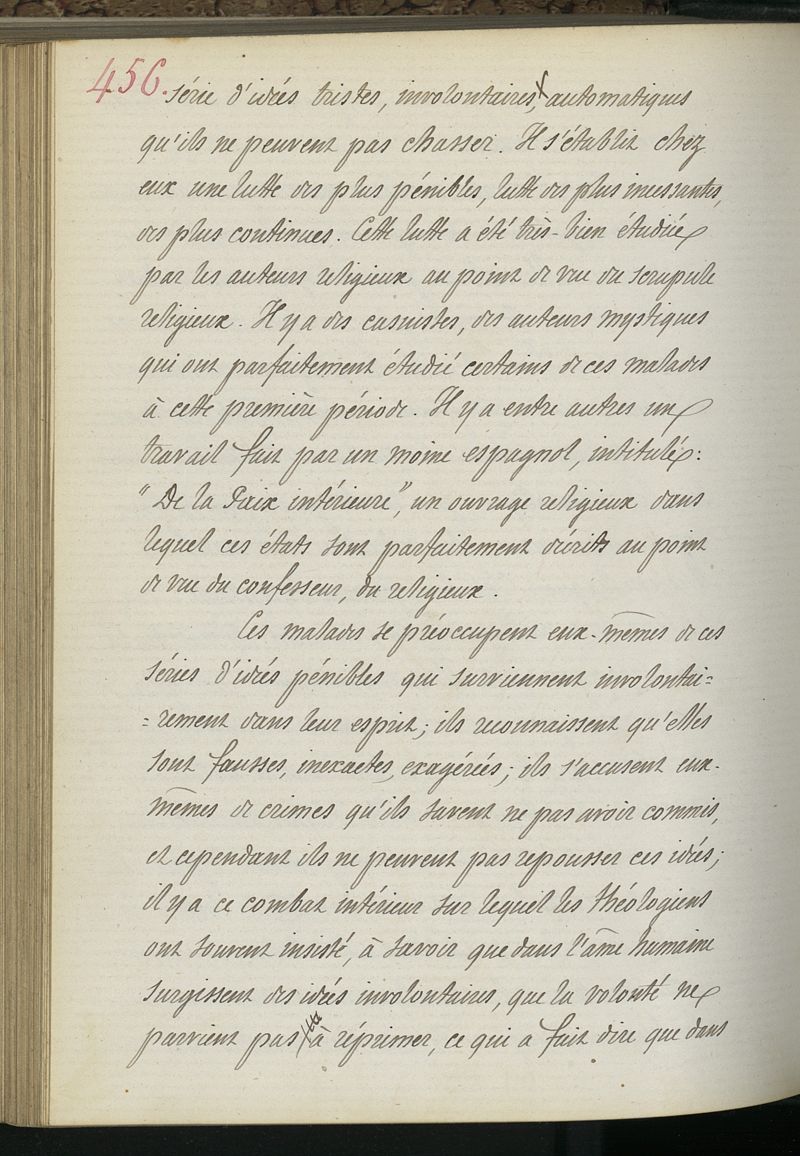 456.
série d'idées tristes, involontaires, automatiques
qu'ils ne peuvent pas chasser. Il s'établit chez
eux une lutte des plus pénibles, lutte des plus incessantes,
des plus continues. Cette lutte a été très-bien étudiée
par les auteurs religieux au point de vue du scrupule
religieux. Il y a des casuistes, des auteurs mystiques
qui ont parfaitement étudié certains de ces malades
à cette première période. Il y a entre autres un
travail fait par un moine espagnol, intitulé :
"De la Paix intérieure", un ouvrage religieux dans
lequel ces états sont parfaitement décrits au point
de vue du confesseur, du religieux.
Ces malades se préoccupent eux-mêmes de ces
séries d'idées pénibles qui surviennent involontai=
=rement dans leur esprit ; ils reconnaissent qu'elles
sont fausses, inexactes, exagérées ; ils s'accusent eux-
mêmes de crimes qu'ils savent ne pas avoir commis,
et cependant ils ne peuvent pas repousser ces idées ;
il y a ce combat intérieur sur lequel les théologiens
ont souvent insisté, à savoir que dans l'âme humaine
surgissent des idées involontaires, que la volonté ne
parvient pas à réprimer, ce qui a fait dire que dans